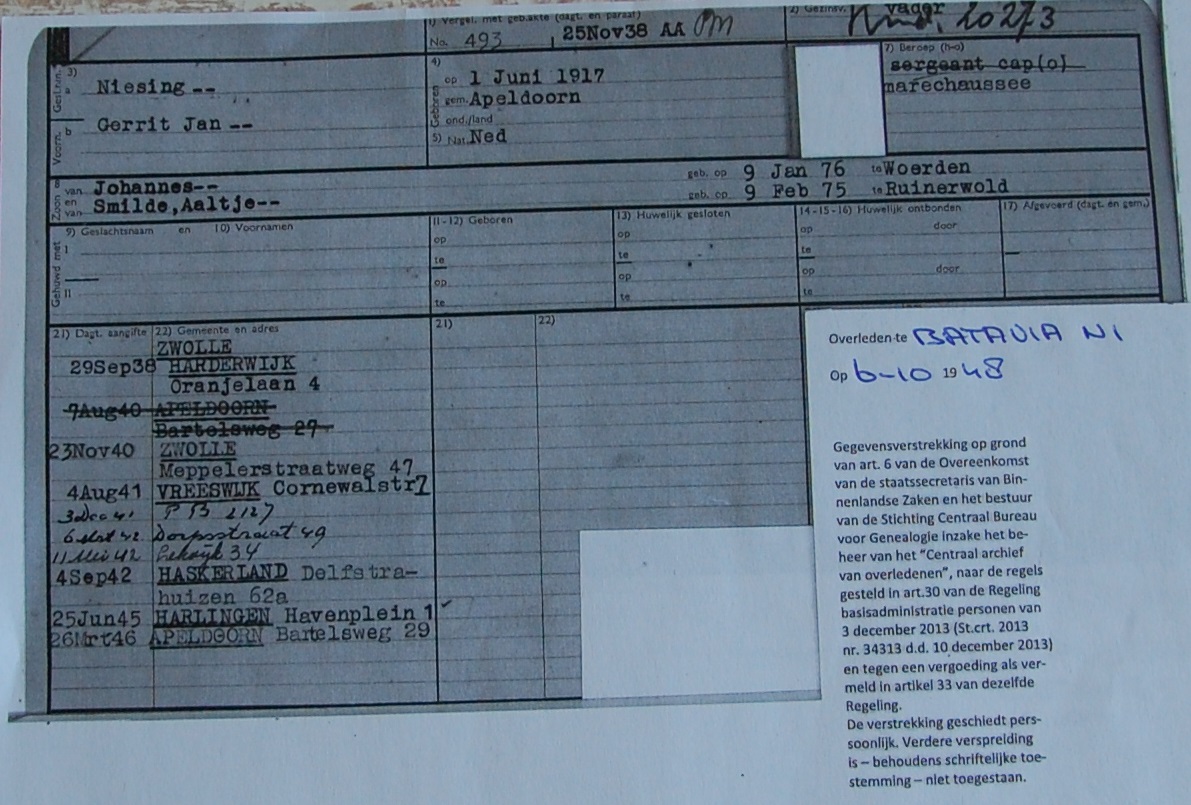 1) Vergel. met geb.akte (dagt. en paraaf)
2) Gezinsv. vader
No. 493 25Nov38 AA
20273
3) a Niesing --
Gesln.
b Gerrit Jan --
Voorn.
4)
Geboren
op 1 Juni 1917
gem. Apeldoorn
ond./land
5) Nat. Ned
7) Beroep (h-o)
sergeant cap(o)
marechaussee
Zoon
van Johannes-- geb. op 9 Jan 76 te Woerden
en
van Smilde,Aaltje-- geb. op 9 Feb 75 te Ruinerwold
Gehuwd met
9) Geslachtsnaam en 10) Voornamen
11-12) Geboren
13) Huwelijk gesloten
14-15-16) Huwelijk ontbonden
17) Afgevoerd (dagt. en gem.)
I op op op door
te te te
II op op op door
te te te
21) Dagt. aangifte 22) Gemeente en adres 21) 22)
ZWOLLE
29Sep38 HARDERWIJK
Oranjelaan 4
7Aug40 APELDOORN
Bartelsweg 27
23Nov40 ZWOLLE
Meppelerstraatweg 47
4Aug41 VREESWIJK Cornewalstr7
3 Dec 41 P 53 2127
6 Mrt 42 Dorpsstraat 49
11 Mei 42 Lekdijk 34
4Sep42 HASKERLAND Delfstra-
huizen 62a
25Jun45 HARLINGEN Havenplein 1
26Mrt46 APELDOORN Bartelsweg 29
Overleden te BATAVIA NI
Op 6-10 1948
Gegevensverstrekking op grond
van art. 6 van de Overeenkomst
van de staatssecretaris van Bin-
nenlandse Zaken en het bestuur
van de Stichting Centraal Bureau
voor Genealogie inzake het be-
heer van het "Centraal archief
van overledenen", naar de regels
gesteld in art.30 van de Regeling
basisadministratie personen van
3 december 2013 (St.crt. 2013
nr. 34313 d.d. 10 december 2013)
en tegen een vergoeding als ver-
meld in artikel 33 van dezelfde
Regeling.
De verstrekking geschiedt pers-
soonlijk. Verdere verspreiding
is – behoudens schriftelijke toe-
stemming – niet toegestaan.